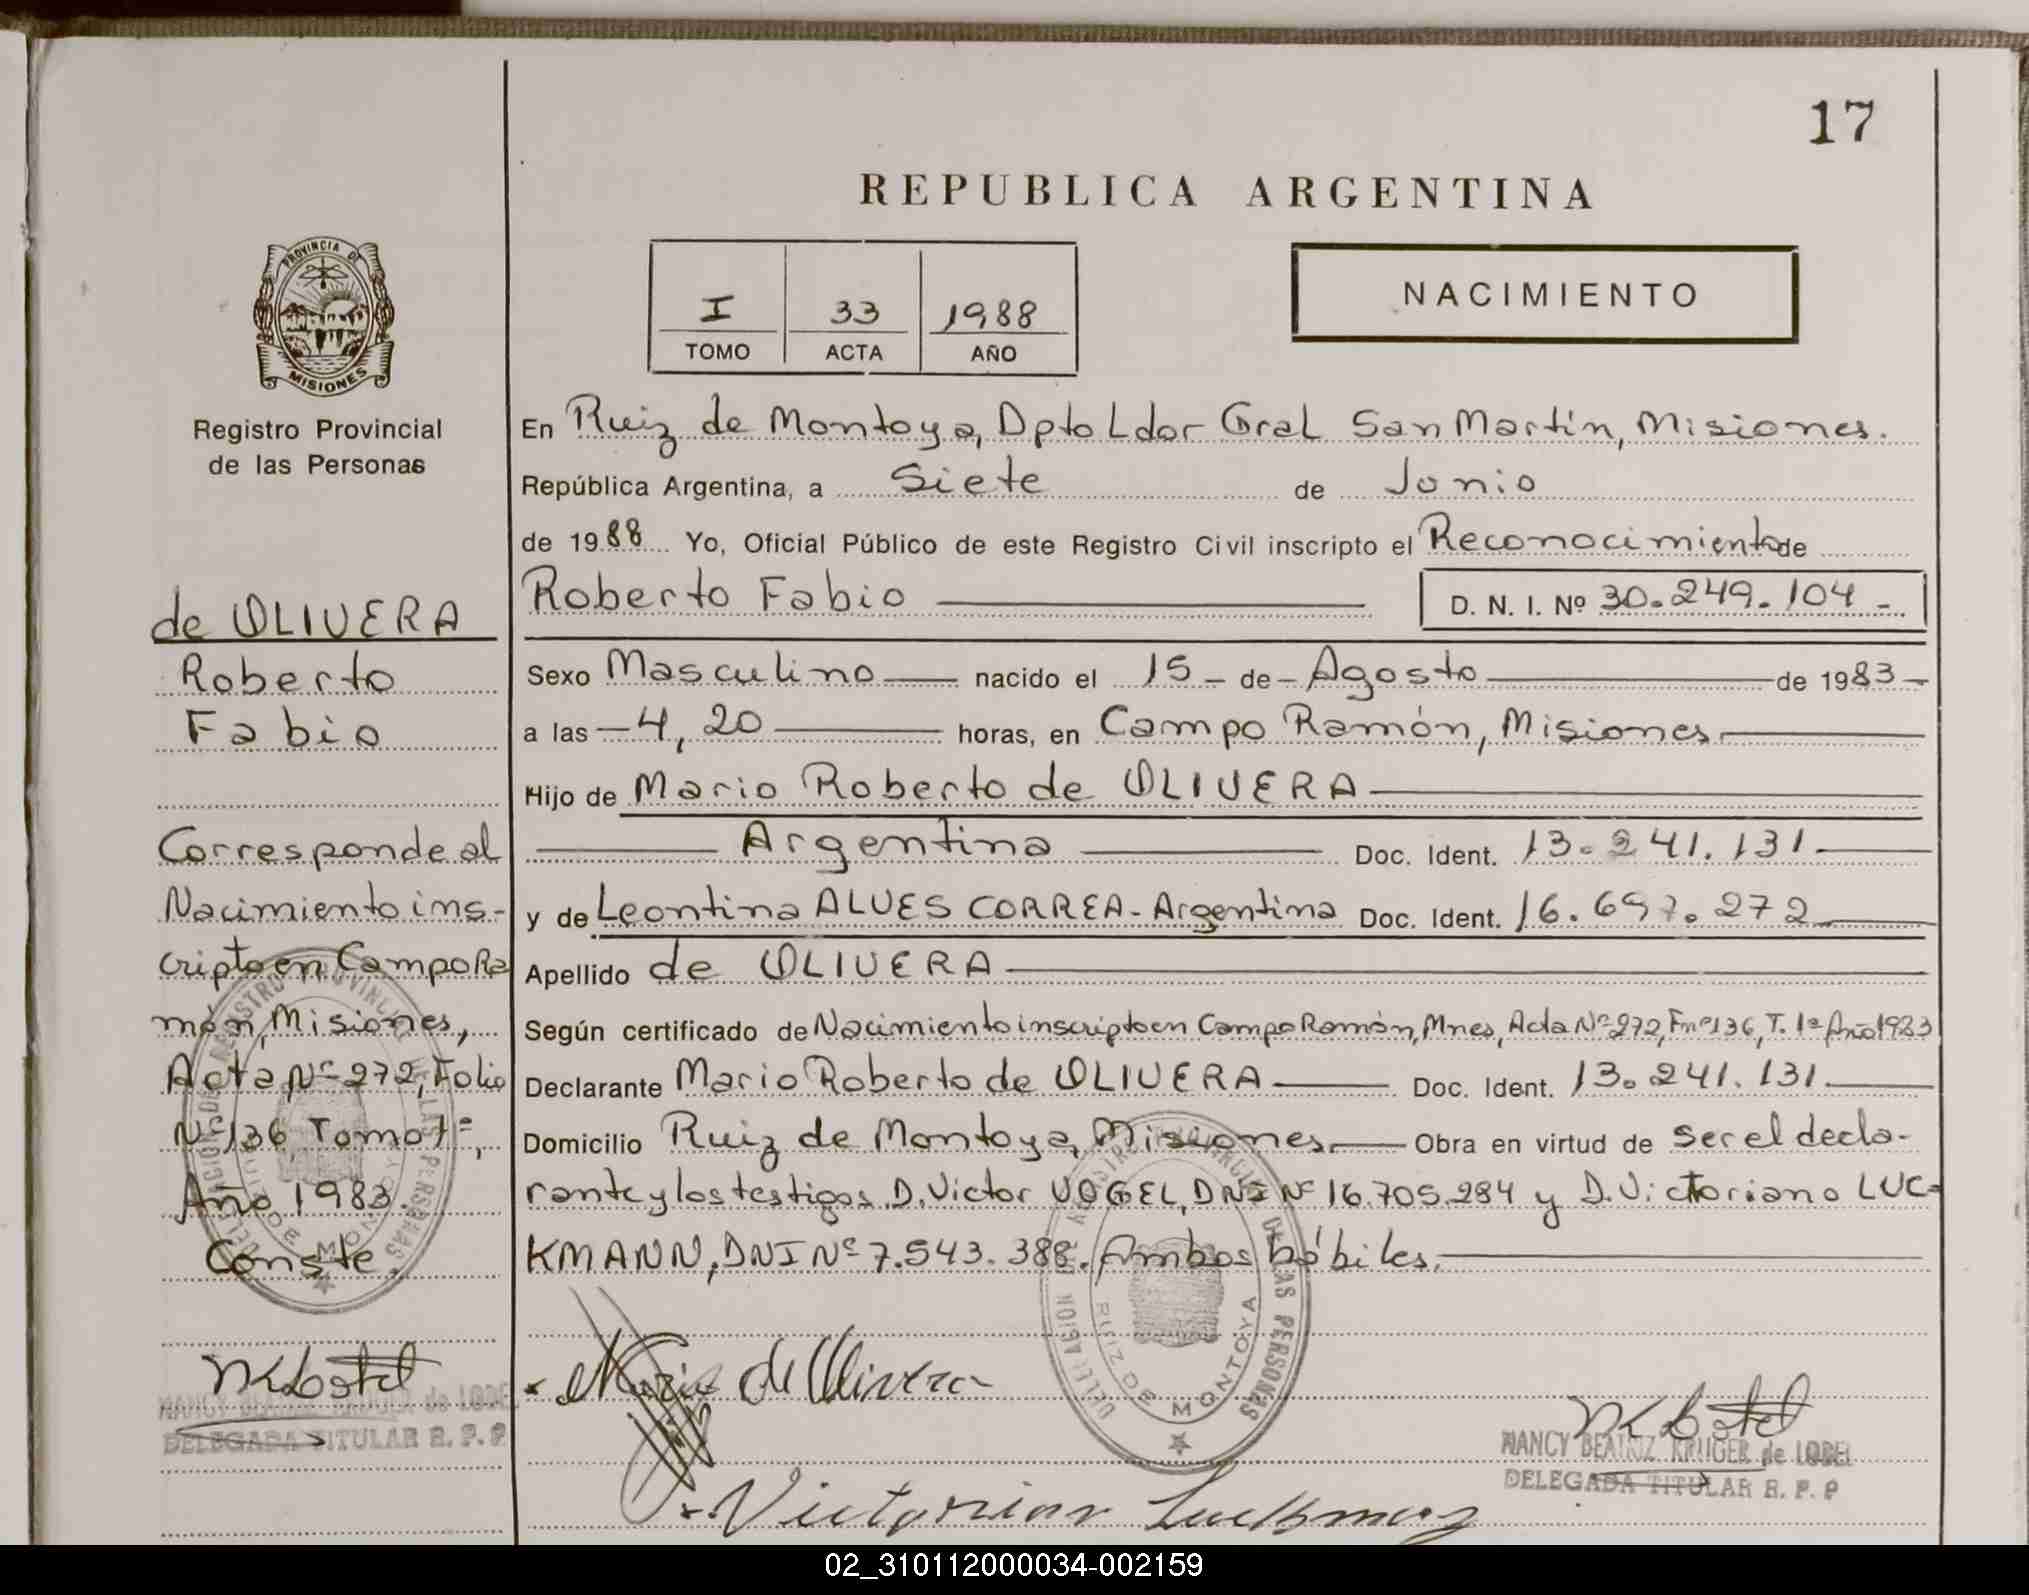 17
REPUBLICA ARGENTINA
PROVINCIA DE
MISIONES
Registro Provincial
de las Personas
I 33 1988
TOMO ACTA AÑO
NACIMIENTO
En Ruiz de Montoya, Dpto Ldor Gral San Martín, Misiones.
República Argentina, a Siete de Junio
de 1988 Yo, Oficial Público de este Registro Civil inscripto el Reconocimiento de
Roberto Fabio D. N. I. Nº 30.249.104-
Sexo Masculino nacido el 15 - de - Agosto de 1983-
a las - 4,20 horas, en Campo Ramón, Misiones.
Hijo de Mario Roberto de OLIVERA
Argentina Doc. Ident. 13.241.131
y de Leontina ALVES CORREA - Argentina Doc. Ident. 16.697.272
Apellido de OLIVERA
Según certificado de Nacimiento inscripto en Campo Ramón, Mnes, Acta Nº 272, Fº nº 136, T. 1º Año 1983
Declarante Mario Roberto de OLIVERA Doc. Ident. 13.241.131
Domicilio Ruiz de Montoya, Misiones. Obra en virtud de ser el decla-
rante y los testigos D. Victor VOGEL, DNI Nº 16.705.284 y D. Victoriano LUC-
KMANN, DNI Nº 7.543.388. Ambos hábiles.
de OLIVERA
Roberto
Fabio
Corresponde al
Nacimiento ins-
cripto en Campo Ra
món, Misiones,
Acta Nº 272, Folio
Nº 136, Tomo 1º,
Año 1983.
Conste.
DELEGACION DEL REGISTRO PROVINCIAL DE LAS PERSONAS
RUIZ DE MONTOYA
NANCY BEATRIZ KRUGER de LODEL
DELEGADA TITULAR R. P. P
Mario de Olivera
DELEGACION DEL REGISTRO PROVINCIAL DE LAS PERSONAS
RUIZ DE MONTOYA
NANCY BEATRIZ KRUGER de LODEL
DELEGADA TITULAR R. P. P
02_310112000034-002159